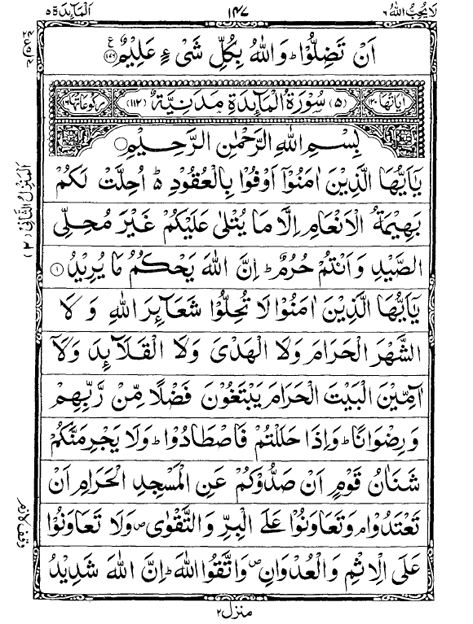 لَا يُحِبُّ اللهُ ٦ ١٤٧ اَلْمَآئِدَة ٥
اَنْ تَضِلُّوْا ؕ وَاللهُ بِكُلِّ شَیْ ءٍ عَلِيْمٌ ۝
اٰيَاتُهَا ١٢٠ (٥) سُوْرَةُ الْمَآئِدَةِ مَدَنِيَّةٌ (١١٢) رُكُوْعَاتُهَا ١٦
بِسْمِ اللهِ الرَّحْمٰنِ الرَّحِيْمِ
يٰۤاَيُّهَا الَّذِيْنَ اٰمَنُوْۤا اَوْفُوْا بِالْعُقُوْدِ ؕ اُحِلَّتْ لَكُمْ
بَهِيْمَةُ الْاَنْعَامِ اِلَّا مَا يُتْلٰى عَلَيْكُمْ غَيْرَ مُحِلِّى
الصَّيْدِ وَاَنْتُمْ حُرُمٌ ؕ اِنَّ اللهَ يَحْكُمُ مَا يُرِيْدُ ۝١
يٰۤاَيُّهَا الَّذِيْنَ اٰمَنُوْا لَا تُحِلُّوْا شَعَآئِرَ اللهِ وَلَا
الشَّهْرَ الْحَرَامَ وَلَا الْهَدْىَ وَلَا الْقَلَآئِدَ وَلَاۤ
آٰمِّيْنَ الْبَيْتَ الْحَرَامَ يَبْتَغُوْنَ فَضْلًا مِّنْ رَّبِّهِمْ
وَرِضْوَانًا ؕ وَاِذَا حَلَلْتُمْ فَاصْطَادُوْا ؕ وَلَا يَجْرِمَنَّكُمْ
شَنَاٰنُ قَوْمٍ اَنْ صَدُّوْكُمْ عَنِ الْمَسْجِدِ الْحَرَامِ اَنْ
تَعْتَدُوْا ۘ وَتَعَاوَنُوْا عَلَى الْبِرِّ وَالتَّقْوٰى ۪ وَلَا تَعَاوَنُوْا
عَلَى الْاِثْمِ وَالْعُدْوَانِ ۪ وَاتَّقُوا اللهَ ؕ اِنَّ اللهَ شَدِيْدُ
منزل ٢